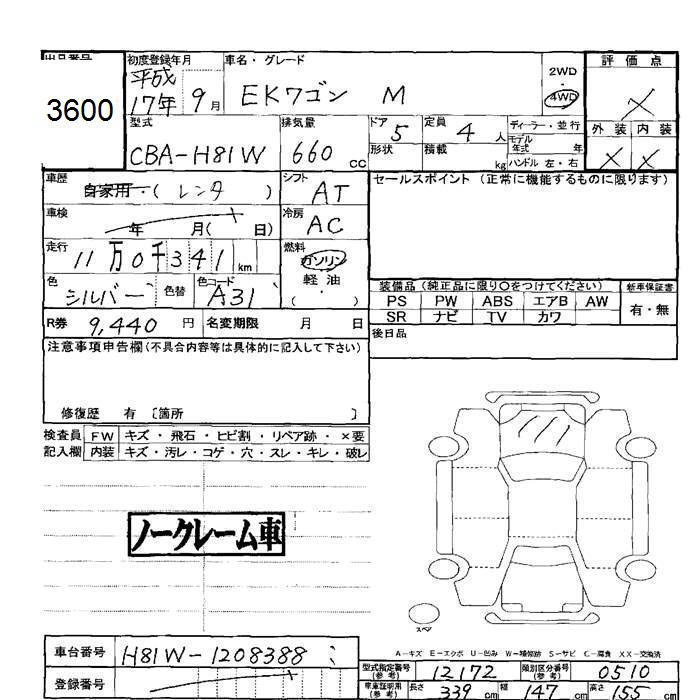 出品番号
3600
初度登録年月
平成
17年 9月
車名・グレード
EKワゴン M
2WD
4WD
評価点
×
外装 内装
× ×
型式
CBA-H81W
排気量
660 cc
ドア
5
形状
定員
4 人
積載
kg
ディーラー・並行
モデル
年式 年
ハンドル 左・右
車歴
自家用・(レンタ )
シフト
AT
セールスポイント (正常に機能するものに限ります)
車検
年 月( 日)
冷房
AC
走行
11万0千341km
燃料
ガソリン
軽油
( )
色
シルバー
色替
色コード
A31
装備品 (純正品に限り○をつけてください)
新車保証書
PS PW ABS エアB AW
SR ナビ TV カワ
有・無
R券 9,440 円 名変期限 月 日
後日品
注意事項申告欄(不具合内容等は具体的に記入して下さい)
修復歴 有 〔箇所 〕
検査員
記入欄
FW キズ・飛石・ヒビ割・リペア跡・×要
内装 キズ・汚レ・コゲ・穴・スレ・キレ・破レ
ノークレーム車
スペア
A-キズ E-エクボ U-凹み W-補修跡 S-サビ C-腐食 XX-交換済
車台番号 H81W-1208388
登録番号
型式指定番号
(参考)
12172
類別区分番号
(参考)
0510
車庫証明用
(参考)
長さ 339 cm 幅 147 cm 高さ 155 cm